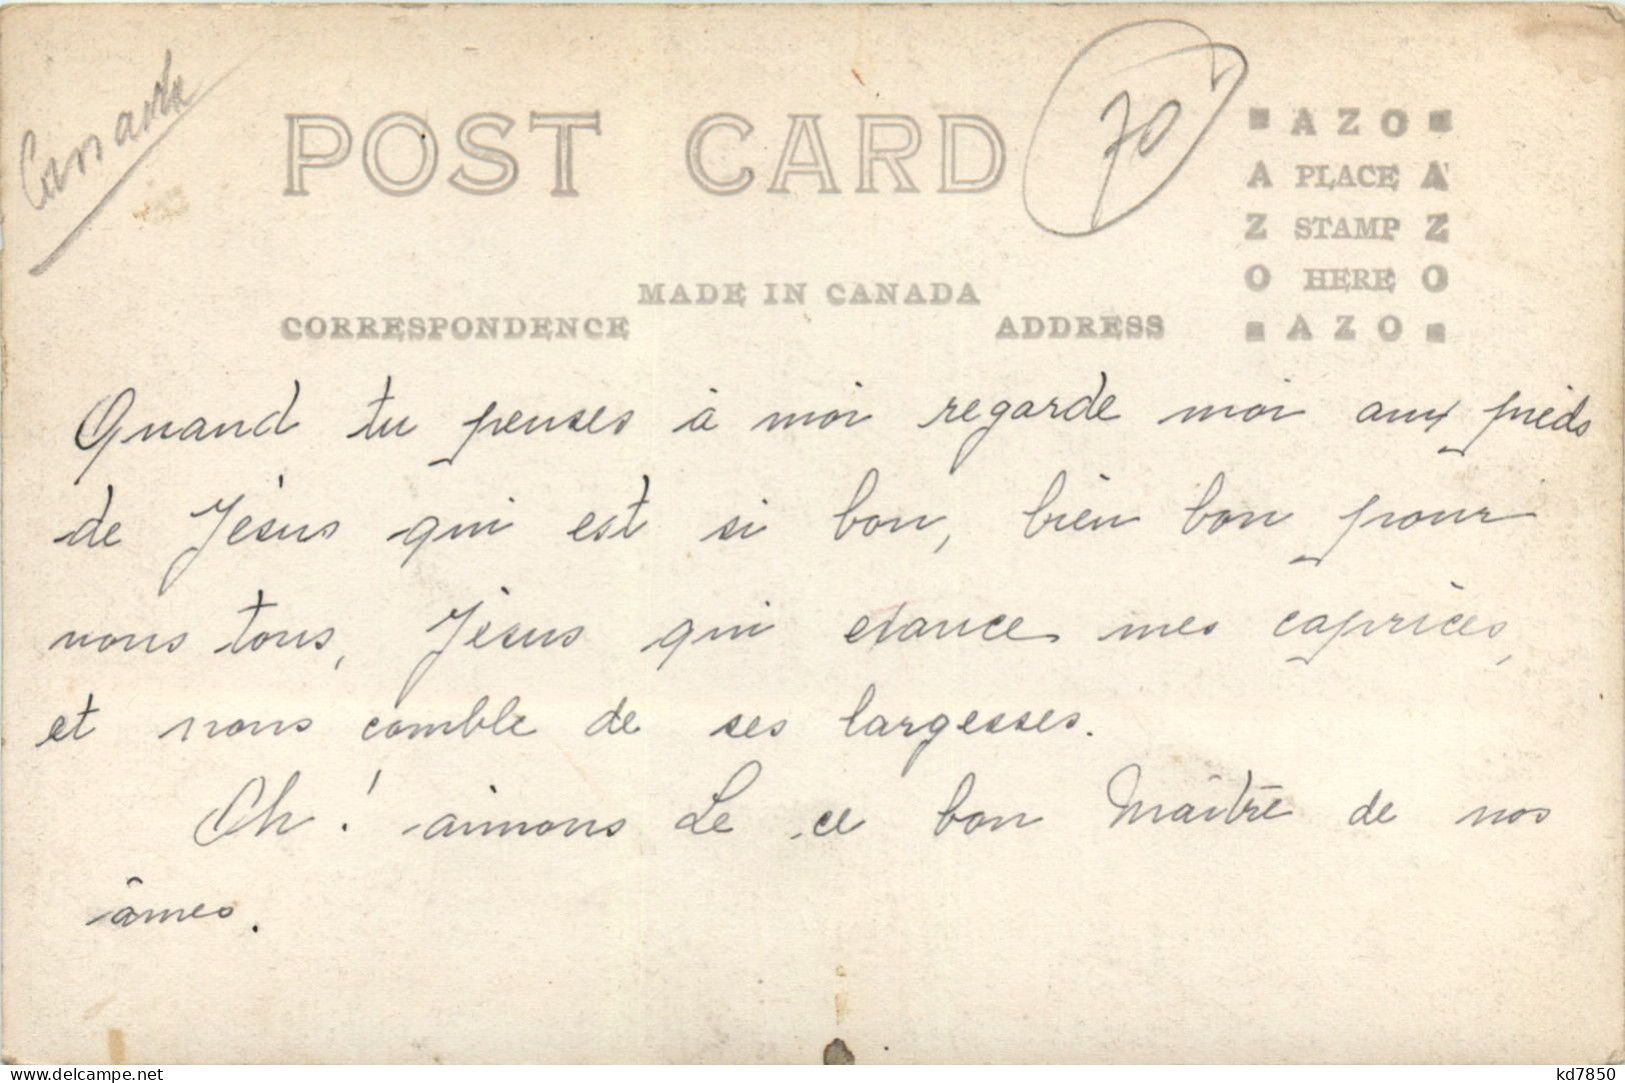 Canada
POST CARD
70
AZO
A PLACE A
Z STAMP Z
O HERE O
AZO
MADE IN CANADA
CORRESPONDENCE
ADDRESS
Quand tu penses à moi regarde moi aux pieds
de Jésus qui est si bon, bien bon pour
nous tous, Jésus qui exauce mes caprices,
et nous comble de ses largesses.
Oh ! aimons Le ce bon Maître de nos
âmes.
kd7850